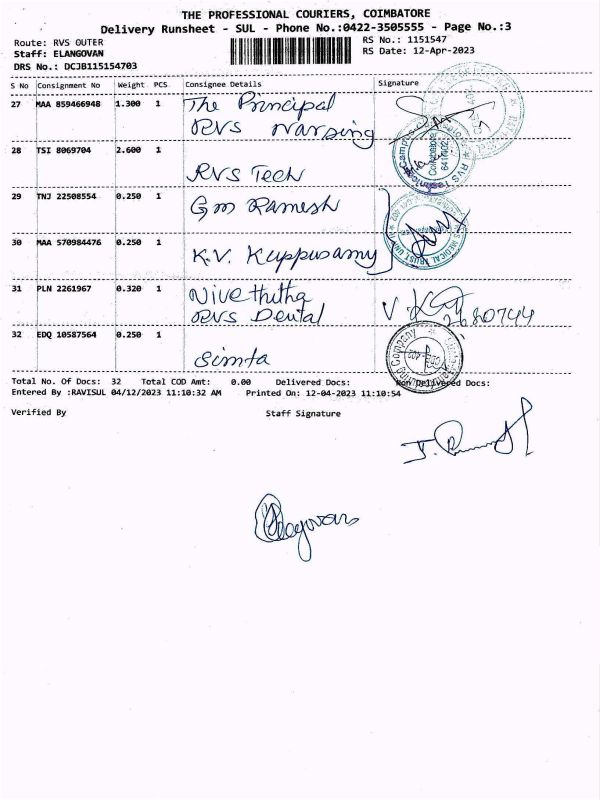 THE PROFESSIONAL COURIERS, COIMBATORE
Delivery Runsheet - SUL - Phone No.:0422-3505555 - Page No.:3
Route: RVS OUTER RS No.: 1151547
Staff: ELANGOVAN RS Date: 12-Apr-2023
DRS No.: DCJB115154703
S No Consignment No Weight PCS Consignee Details Signature
27 MAA 859466948 1.300 1 The Principal
RVS Nursing
28 TSI 8069704 2.600 1 RVS Tech
29 TNJ 22508554 0.250 1 Gm Ramesh
30 MAA 570984476 0.250 1 K.V. Kuppusamy
31 PLN 2261967 0.320 1 Nivethitha
RVS Dental
32 EDQ 10587564 0.250 1 Simta
Total No. Of Docs: 32 Total COD Amt: 0.00 Delivered Docs: Non Delivered Docs:
Entered By :RAVISUL 04/12/2023 11:10:32 AM Printed On: 12-04-2023 11:10:54
Verified By Staff Signature
Elangovan